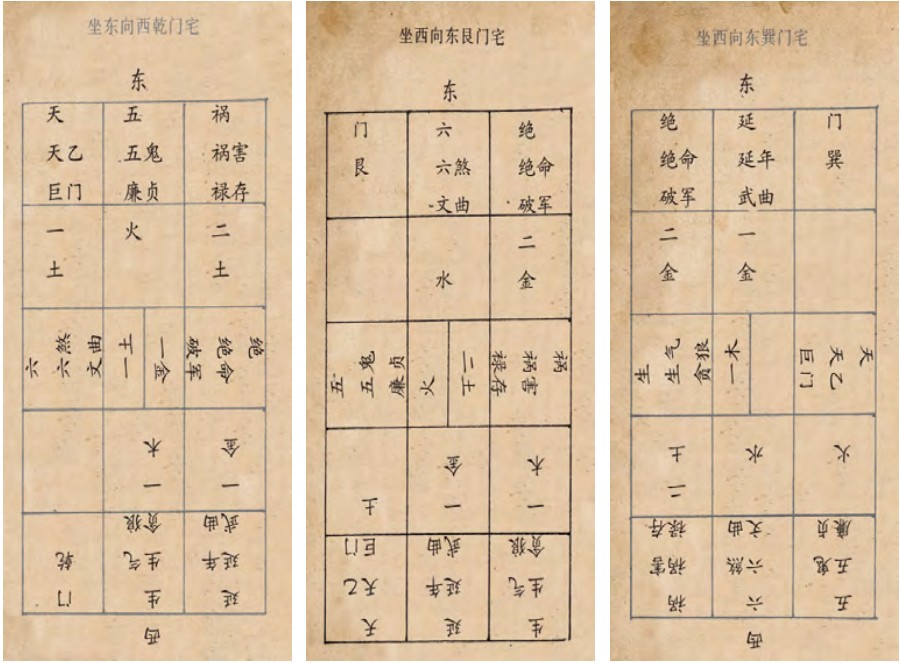 坐东向西乾门宅
东
天 五 祸
天乙 五鬼 祸害
巨门 廉贞 禄存
一 火 二
土 土
六
六煞
文曲
一土
一金
破军
绝命
绝
木 金
一 一
贪狼 武曲
乾 生气 延年
门 生 延
西
坐西向东艮门宅
东
门 六 绝
艮 六煞 绝命
文曲 破军
二
水 金
五
五鬼
廉贞
火
二土
禄存
祸害
祸
金 木
土 一 一
巨门 武曲 贪狼
天乙 延年 生气
天 延 生
坐西向东巽门宅
东
绝 延 门
绝命 延年 巽
破军 武曲
二 一
金 金
生
生气
贪狼
一木
巨门
天乙
天
土 水 火
二
禄存 文曲 廉贞
祸害 六煞 五鬼
祸 六 五
西